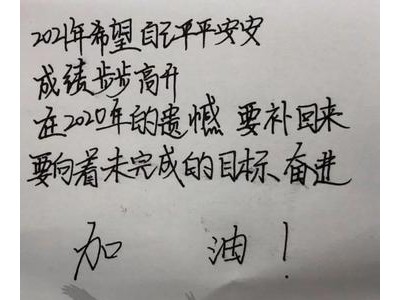 2021年希望自己平平安安
成绩步步高升
在2020年的遗憾 要补回来
要向着未完成的目标、奋进
加 油！